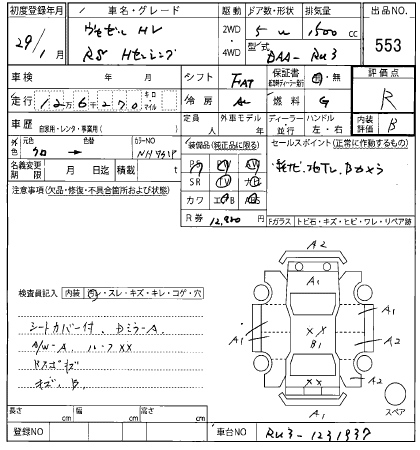 初度登録年月
29/1月
車名・グレード
ヴェゼル HV
RS Hセンシング
駆動
2WD
・
4WD
ドア数・形状
5 W
排気量
1500 cc
型式
DAA- RU3
出品NO.
553
車検 年 月
シフト
FAT
保証書
有・無
評価点
R
走行 12万6千270 キロ マイル
冷房
AC
燃料
G
内装評価
B
車歴
自家用・レンタ・事業用( )
定員 人
外車モデル 年
ディーラー 並行
ハンドル 左・右
外色
元色
クロ →
色替
カラーNO
NH
装備品(純正品に限る)
PS PW
SR TV ナビ
カワ エアB
セールスポイント(正常に作動するもの)
純ナビ、フルTV、Bカメラ
名義変更期限 月 日迄
積載 t
R券
Fガラス トビ石・キズ・ヒビ・ワレ・リペア跡
注意事項(欠品・修復・不具合箇所および状態)
検査員記入
内装 ・スレ・キズ・キレ・コゲ・穴
シートカバー付、Dミラー A
A/W-A ルーフ XX
キズ、B
A2
A1
A1
XX
B1
A1
A2
XX
A2
A1
スペア
長さ cm
幅 cm
高さ cm
登録NO
車台NO
RU3-1231937